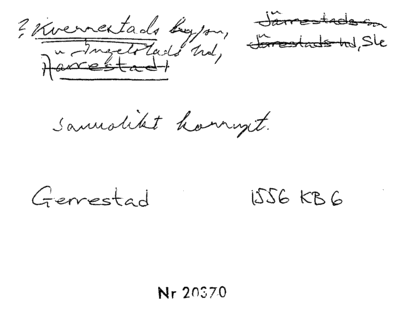 ? Kverrestads by, sn,
u Ingelstads hd,
Harrestad 1
Järrestads sn
Järrestads hd, Sk
sannolikt korrupt.
Gerrestad 1556 KB 6
Nr 20370